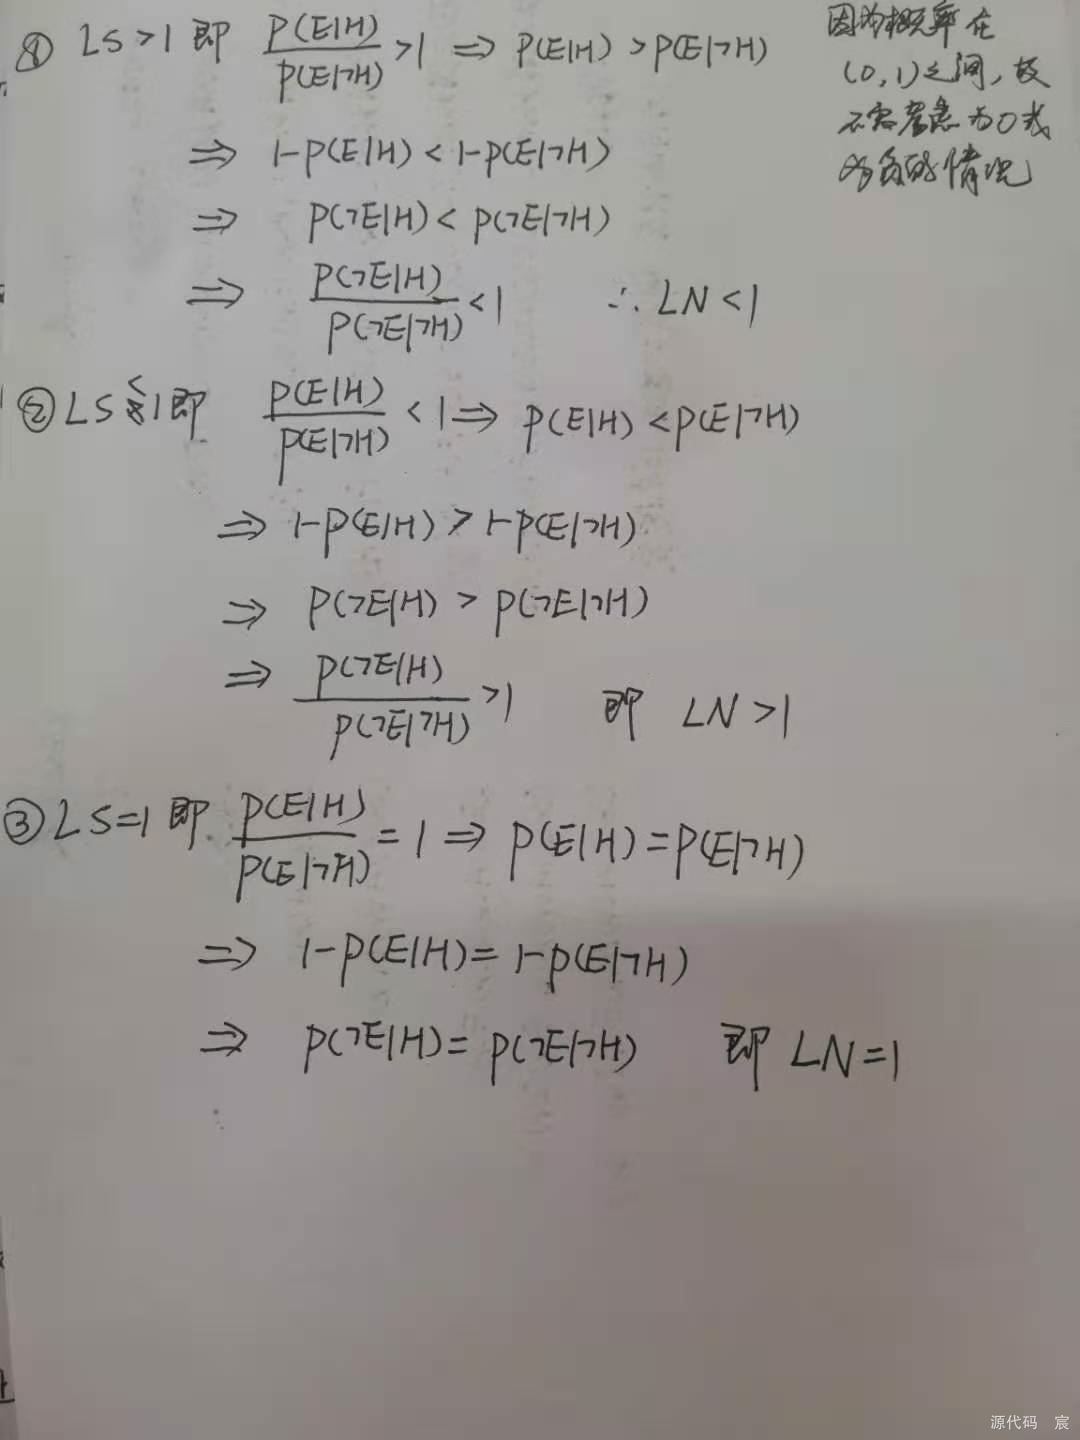 ① LS>1 即 P(E|H)/P(E|¬H) >1 ⇒ P(E|H) > P(E|¬H)
因为概率在
(0,1)之间,故
不需考虑为0或
为负的情况
⇒ 1-P(E|H) < 1-P(E|¬H)
⇒ P(¬E|H) < P(¬E|¬H)
⇒ P(¬E|H)/P(¬E|¬H) <1 ∴ LN<1
② LS<1即 P(E|H)/P(E|¬H) <1 ⇒ P(E|H) < P(E|¬H)
⇒ 1-P(E|H) > 1-P(E|¬H)
⇒ P(¬E|H) > P(¬E|¬H)
⇒ P(¬E|H)/P(¬E|¬H) >1 即 LN>1
③ LS=1 即 P(E|H)/P(E|¬H) = 1 ⇒ P(E|H)=P(E|¬H)
⇒ 1-P(E|H)= 1-P(E|¬H)
⇒ P(¬E|H)= P(¬E|¬H) 即 LN=1
源代码 宸